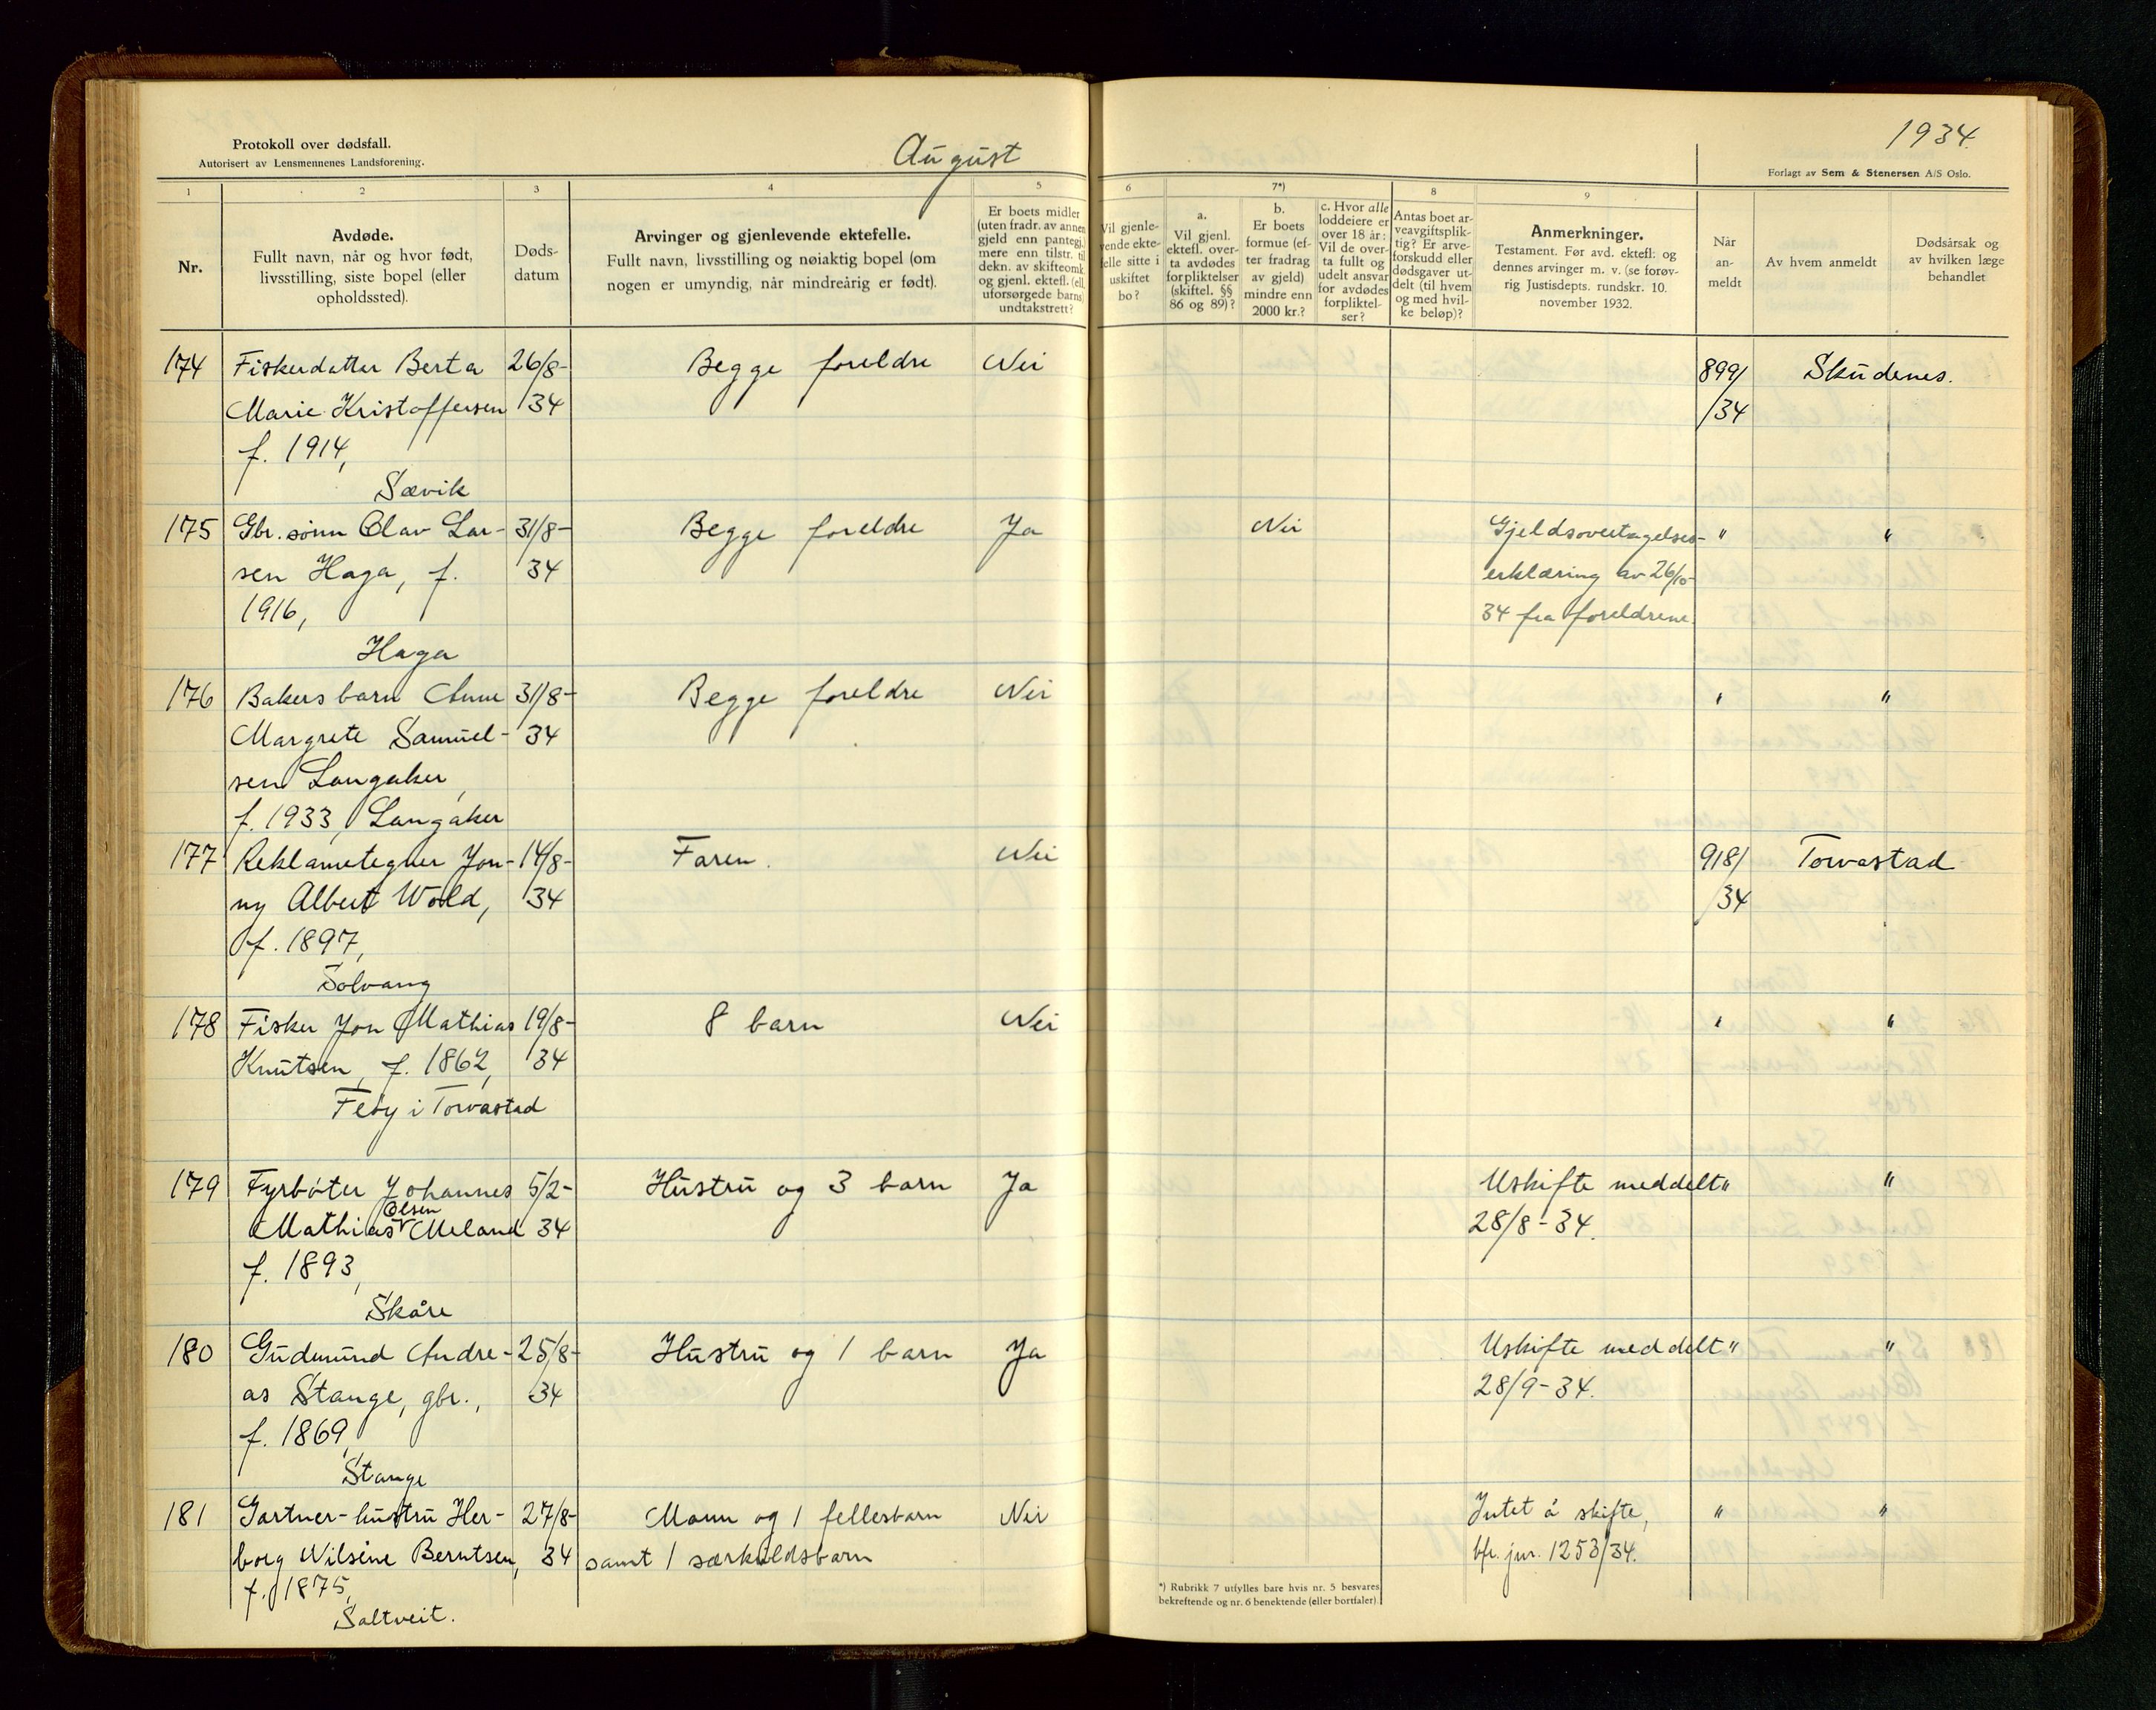 Protokoll over dødsfall.
Autorisert av Lensmennenes Landsforening.
August
1934.
Forlagt av Sem & Stenersen A/S Oslo.
1
2
3
4
5
6
7*)
8
9
Nr.
Avdøde.
Fullt navn, når og hvor født,
livsstilling, siste bopel (eller
opholdssted).
Døds-
datum
Arvinger og gjenlevende ektefelle.
Fullt navn, livsstilling og nøiaktig bopel (om
nogen er umyndig, når mindreårig er født).
Er boets midler
(uten fradr. av annen
gjeld enn pantegj.)
mere enn tilstr. til
dekn. av skifteomk.
og gjenl. ektefl. (ell.
uforsørgede barns)
undtakstrett?
Vil gjenle-
vende ekte-
felle sitte i
uskiftet
bo?
a.
Vil gjenl.
ektefl. over-
ta avdødes
forpliktelser
(skiftel. §§
86 og 89)?
b.
Er boets
formue (ef-
ter fradrag
av gjeld)
mindre enn
2000 kr.?
c. Hvor alle
loddeiere er
over 18 år:
Vil de over-
ta fullt og
udelt ansvar
for avdødes
forpliktel-
ser?
Antas boet ar-
veavgiftsplik-
tig? Er arve-
forskudd eller
dødsgaver ut-
delt (til hvem
og med hvil-
ke beløp)?
Anmerkninger.
Testament. Før avd. ektefl: og
dennes arvinger m. v. (se forøv-
rig Justisdepts. rundskr. 10.
november 1932.
Når
an-
meldt
Av hvem anmeldt
Dødsårsak og
av hvilken læge
behandlet
174 Fiskerdatter Berta 26/8- Begge foreldre Nei 899/ Skudenes.
Marie Kristoffersen 34 /34
f. 1914,
Sævik
175 Gbr. sønn Olav Lar- 31/8- Begge foreldre Ja Nei Gjeldsovertagelses- " "
sen Haga, f. 34 erklæring av 26/10-
1916, 34 fra foreldrene.
Haga
176 Bakersbarn Anne 31/8- Begge foreldre Nei " "
Margrete Samuel- 34
sen Langaker,
f. 1933, Langaker
177 Reklametegner Jon- 14/8- Faren. Nei 918/ Torvastad
ny Albert Wold, 34 /34
f. 1897,
Solvang
178 Fisker Jon Mathias 19/8- 8 barn Nei " "
Knutsen, f. 1862, 34
Feøy i Torvastad
179 Fyrbøter Johannes 5/2- Hustru og 3 barn Ja Uskifte meddelt " "
Olsen
Mathias Meland 34 28/8-34.
f. 1893,
Skåre
180 Gudmund Andre- 25/8- Hustru og 1 barn Ja Uskifte meddelt " "
as Stange, gbr., 34 28/9-34.
f. 1869,
Stange
181 Gartner-hustru Her- 27/8- Mann og 1 fellesbarn Nei Intet å skifte, " "
borg Nilsine Berntsen, 34 samt 1 særkuldsbarn bfr. jnr. 1253/34.
f. 1875,
Saltveit.
*) Rubrikk 7 utfylles bare hvis nr. 5 besvares
bekreftende og nr. 6 benektende (eller bortfaler).